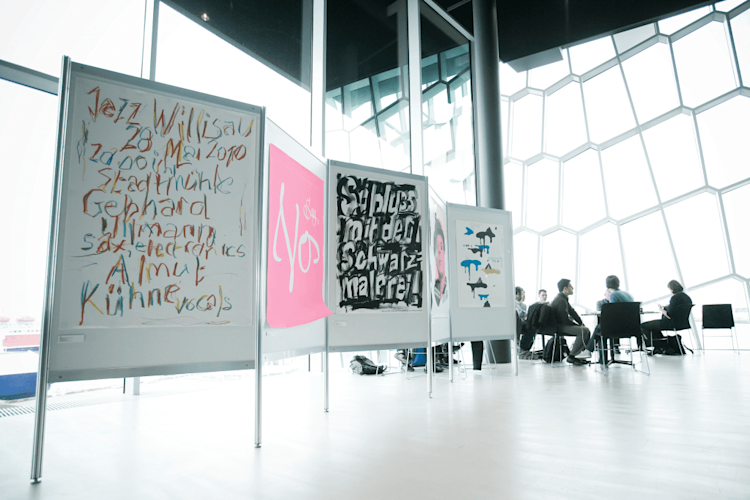 Jezz Willisau
28.
Mai 2010
Stadtmühle
Gebhard
Ullmann
sax, electronics
Almut
Kühne vocals
Schluss
mit der
Schwarz-
malerei!